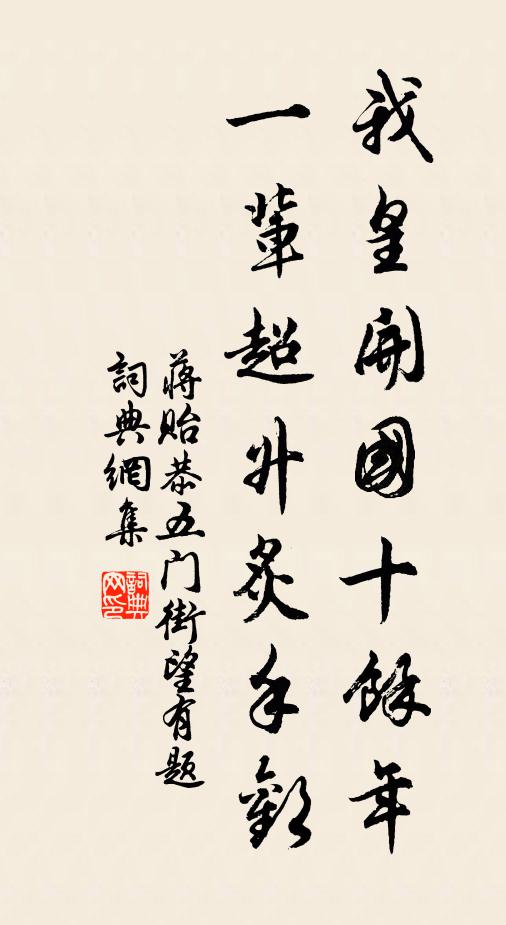 我皇開國十餘年
一輩超升炙手歡
蔣貽恭五门街望有题
詞典網集
詞典
网印